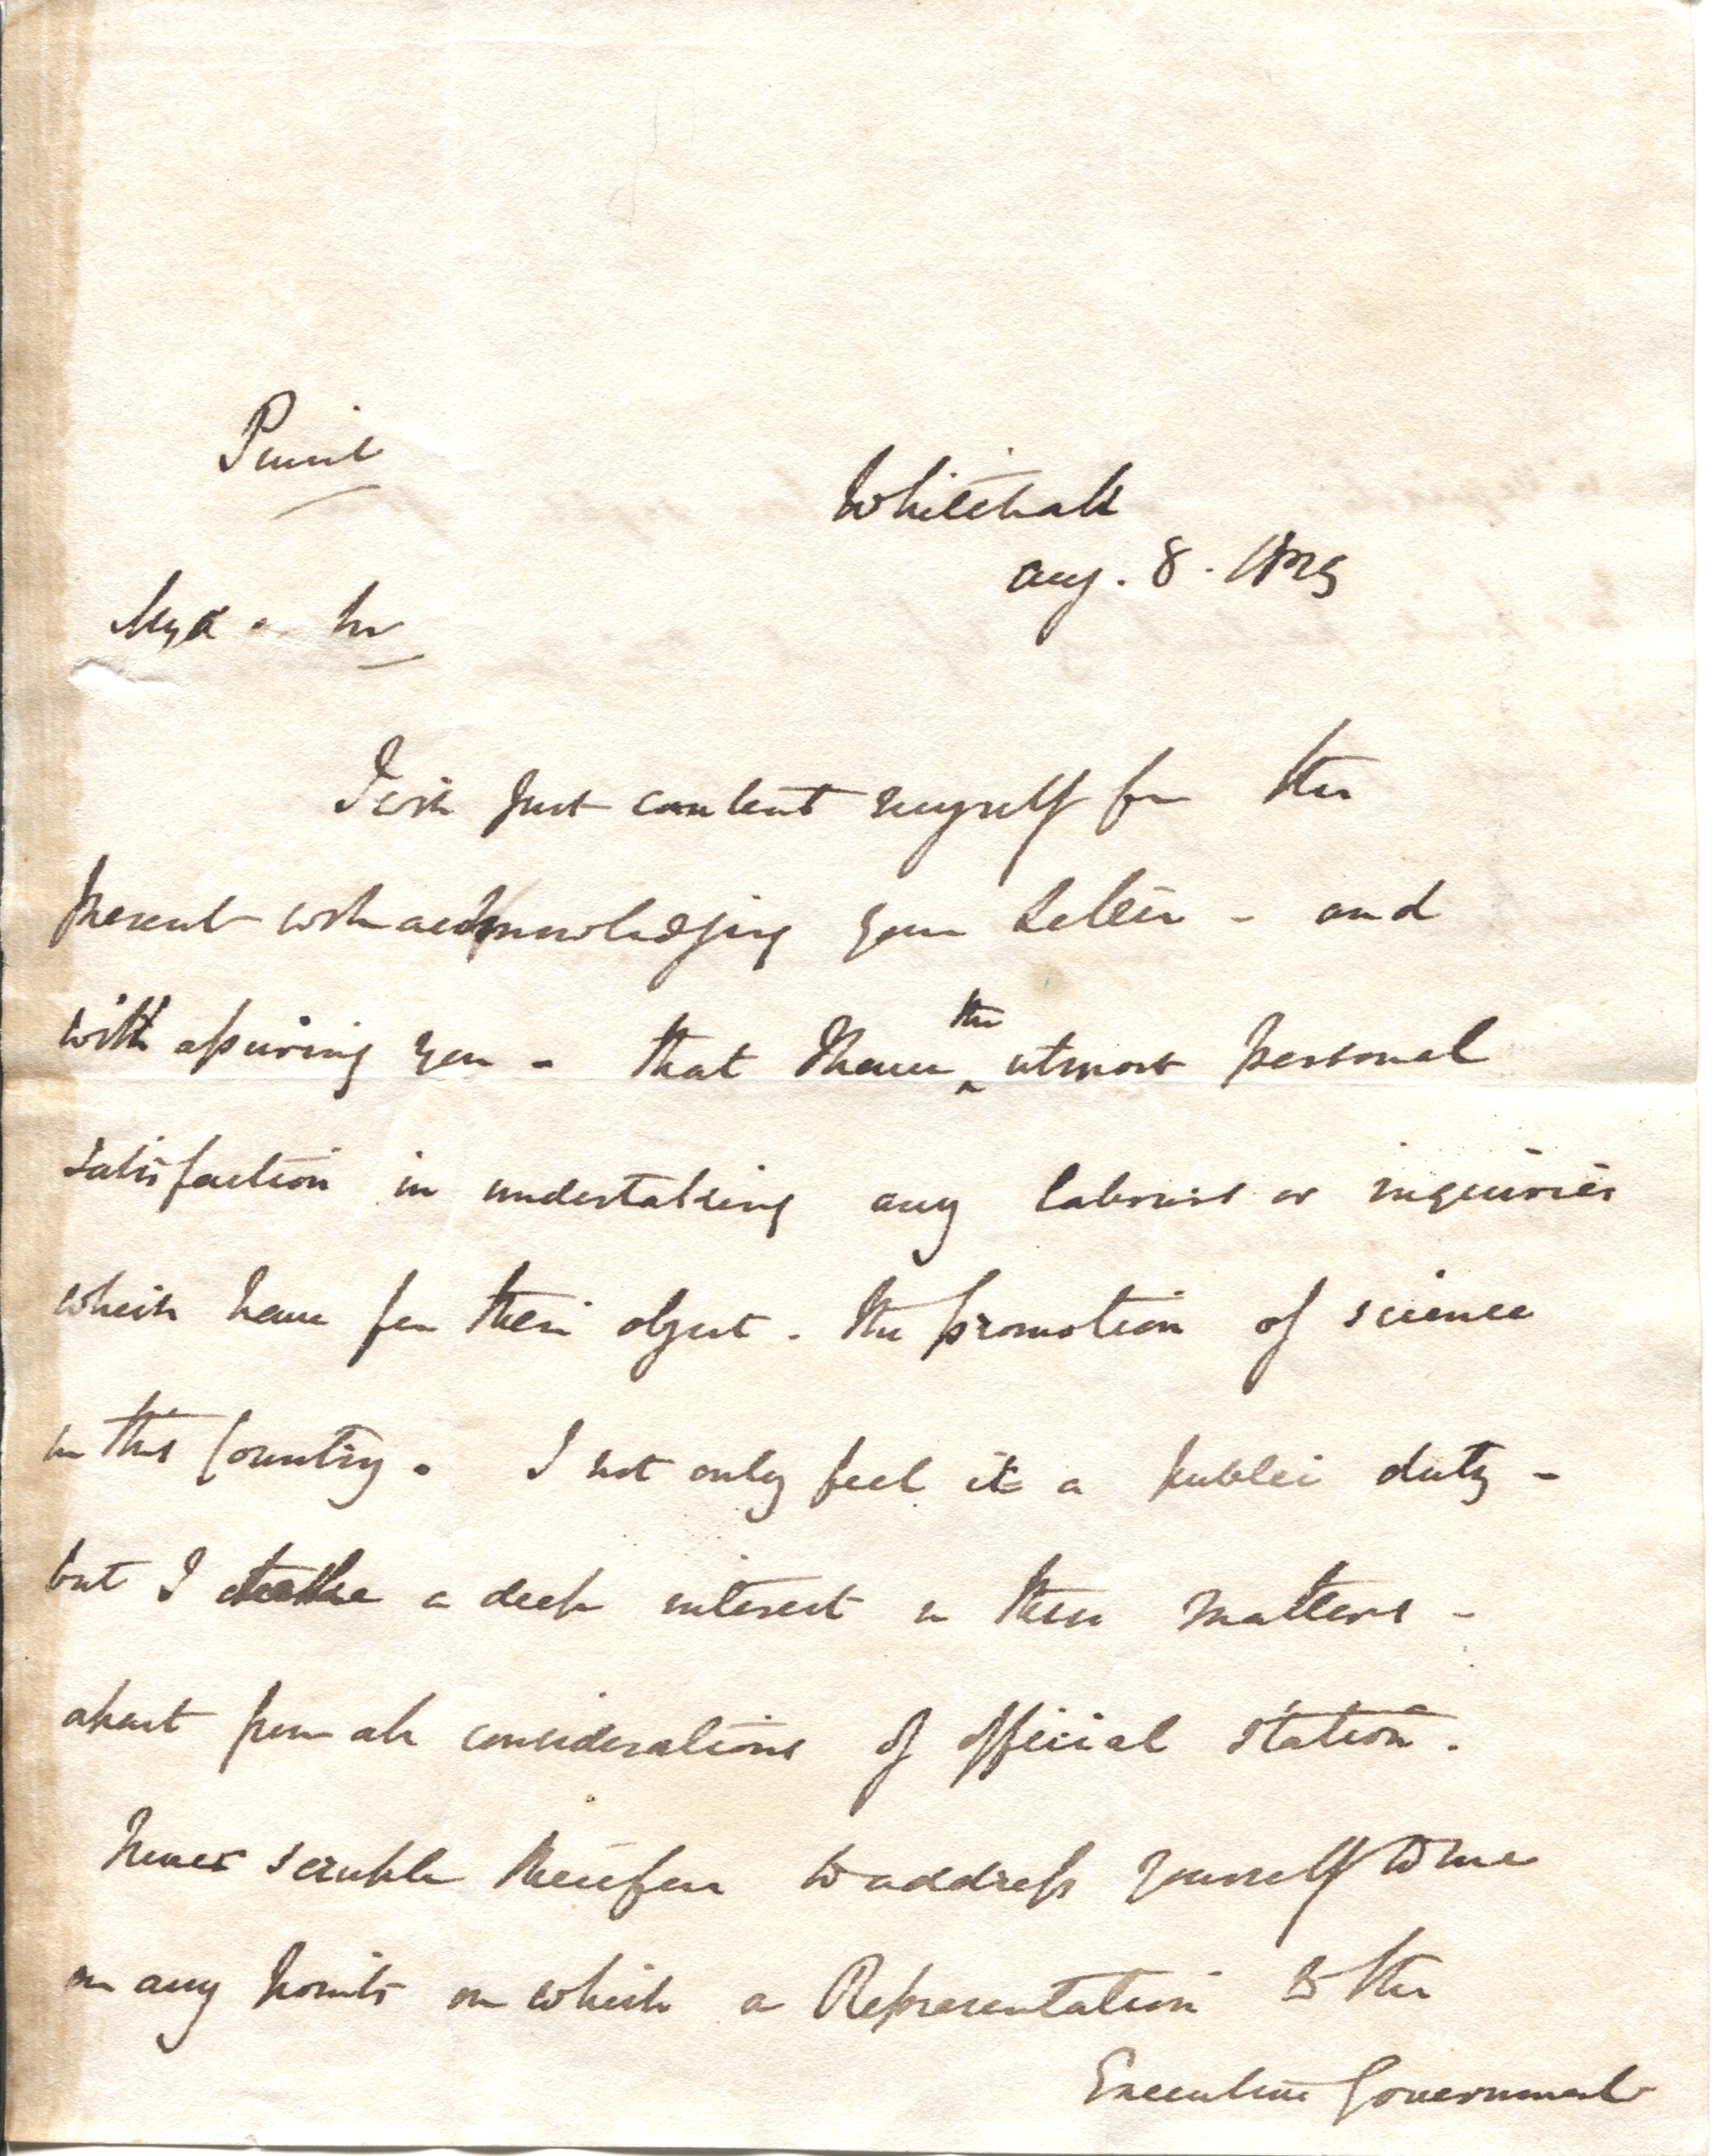 Private
Whitehall
Aug. 8. 1835
My d. Sir
I will just content myself for the
present with acknowledging your Letter - and
with assuring you - that I have the utmost personal
satisfaction in undertaking any labours or inquiries
which have for their object - the promotion of science
in this Country. I not only feel it a public duty -
but I take a deep interest in these matters -
apart from all considerations of official station.
Never scruple therefore to address yourself to me
on any points on which a Representation to the
Executive Government